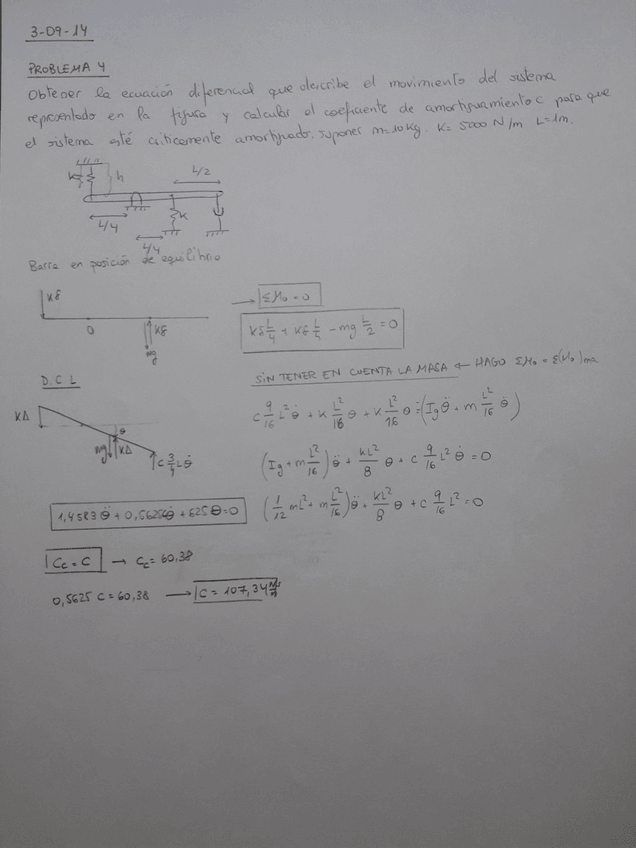 3-09-14
PROBLEMA 4
Obtener la ecuación diferencial que describe el movimiento del sistema
representado en la figura y calcular el coeficiente de amortiguamiento c para que
el sistema esté críticamente amortiguado. Suponer m=10Kg. K= 5000 N/m L=1m.
k h L/2
K
L/4
L/4
Barra en posición de equilibrio
Kδ → ΣMo = 0
O Kδ Kδ L/4 + Kδ L/4 - mg L/2 = 0
mg
D.C.L SIN TENER EN CUENTA LA MASA HAGO ΣMo = Σ(Mo)ma
KΔ θ c 9/16 L² θ̇ + K L²/16 θ + K L²/16 θ = (Ig θ̈ + m L²/16 θ̈)
mg KΔ c 3/4 L θ̇ (Ig + m L²/16) θ̈ + KL²/8 θ + c 9/16 L² θ̇ = 0
1,4583 θ̈ + 0,5625 θ̇ + 625 θ = 0 (1/12 mL² + m L²/16) θ̈ + KL²/8 θ + c 9/16 L² = 0
Cc = C → Cc = 60,38
0,5625 C = 60,38 → C = 107,34